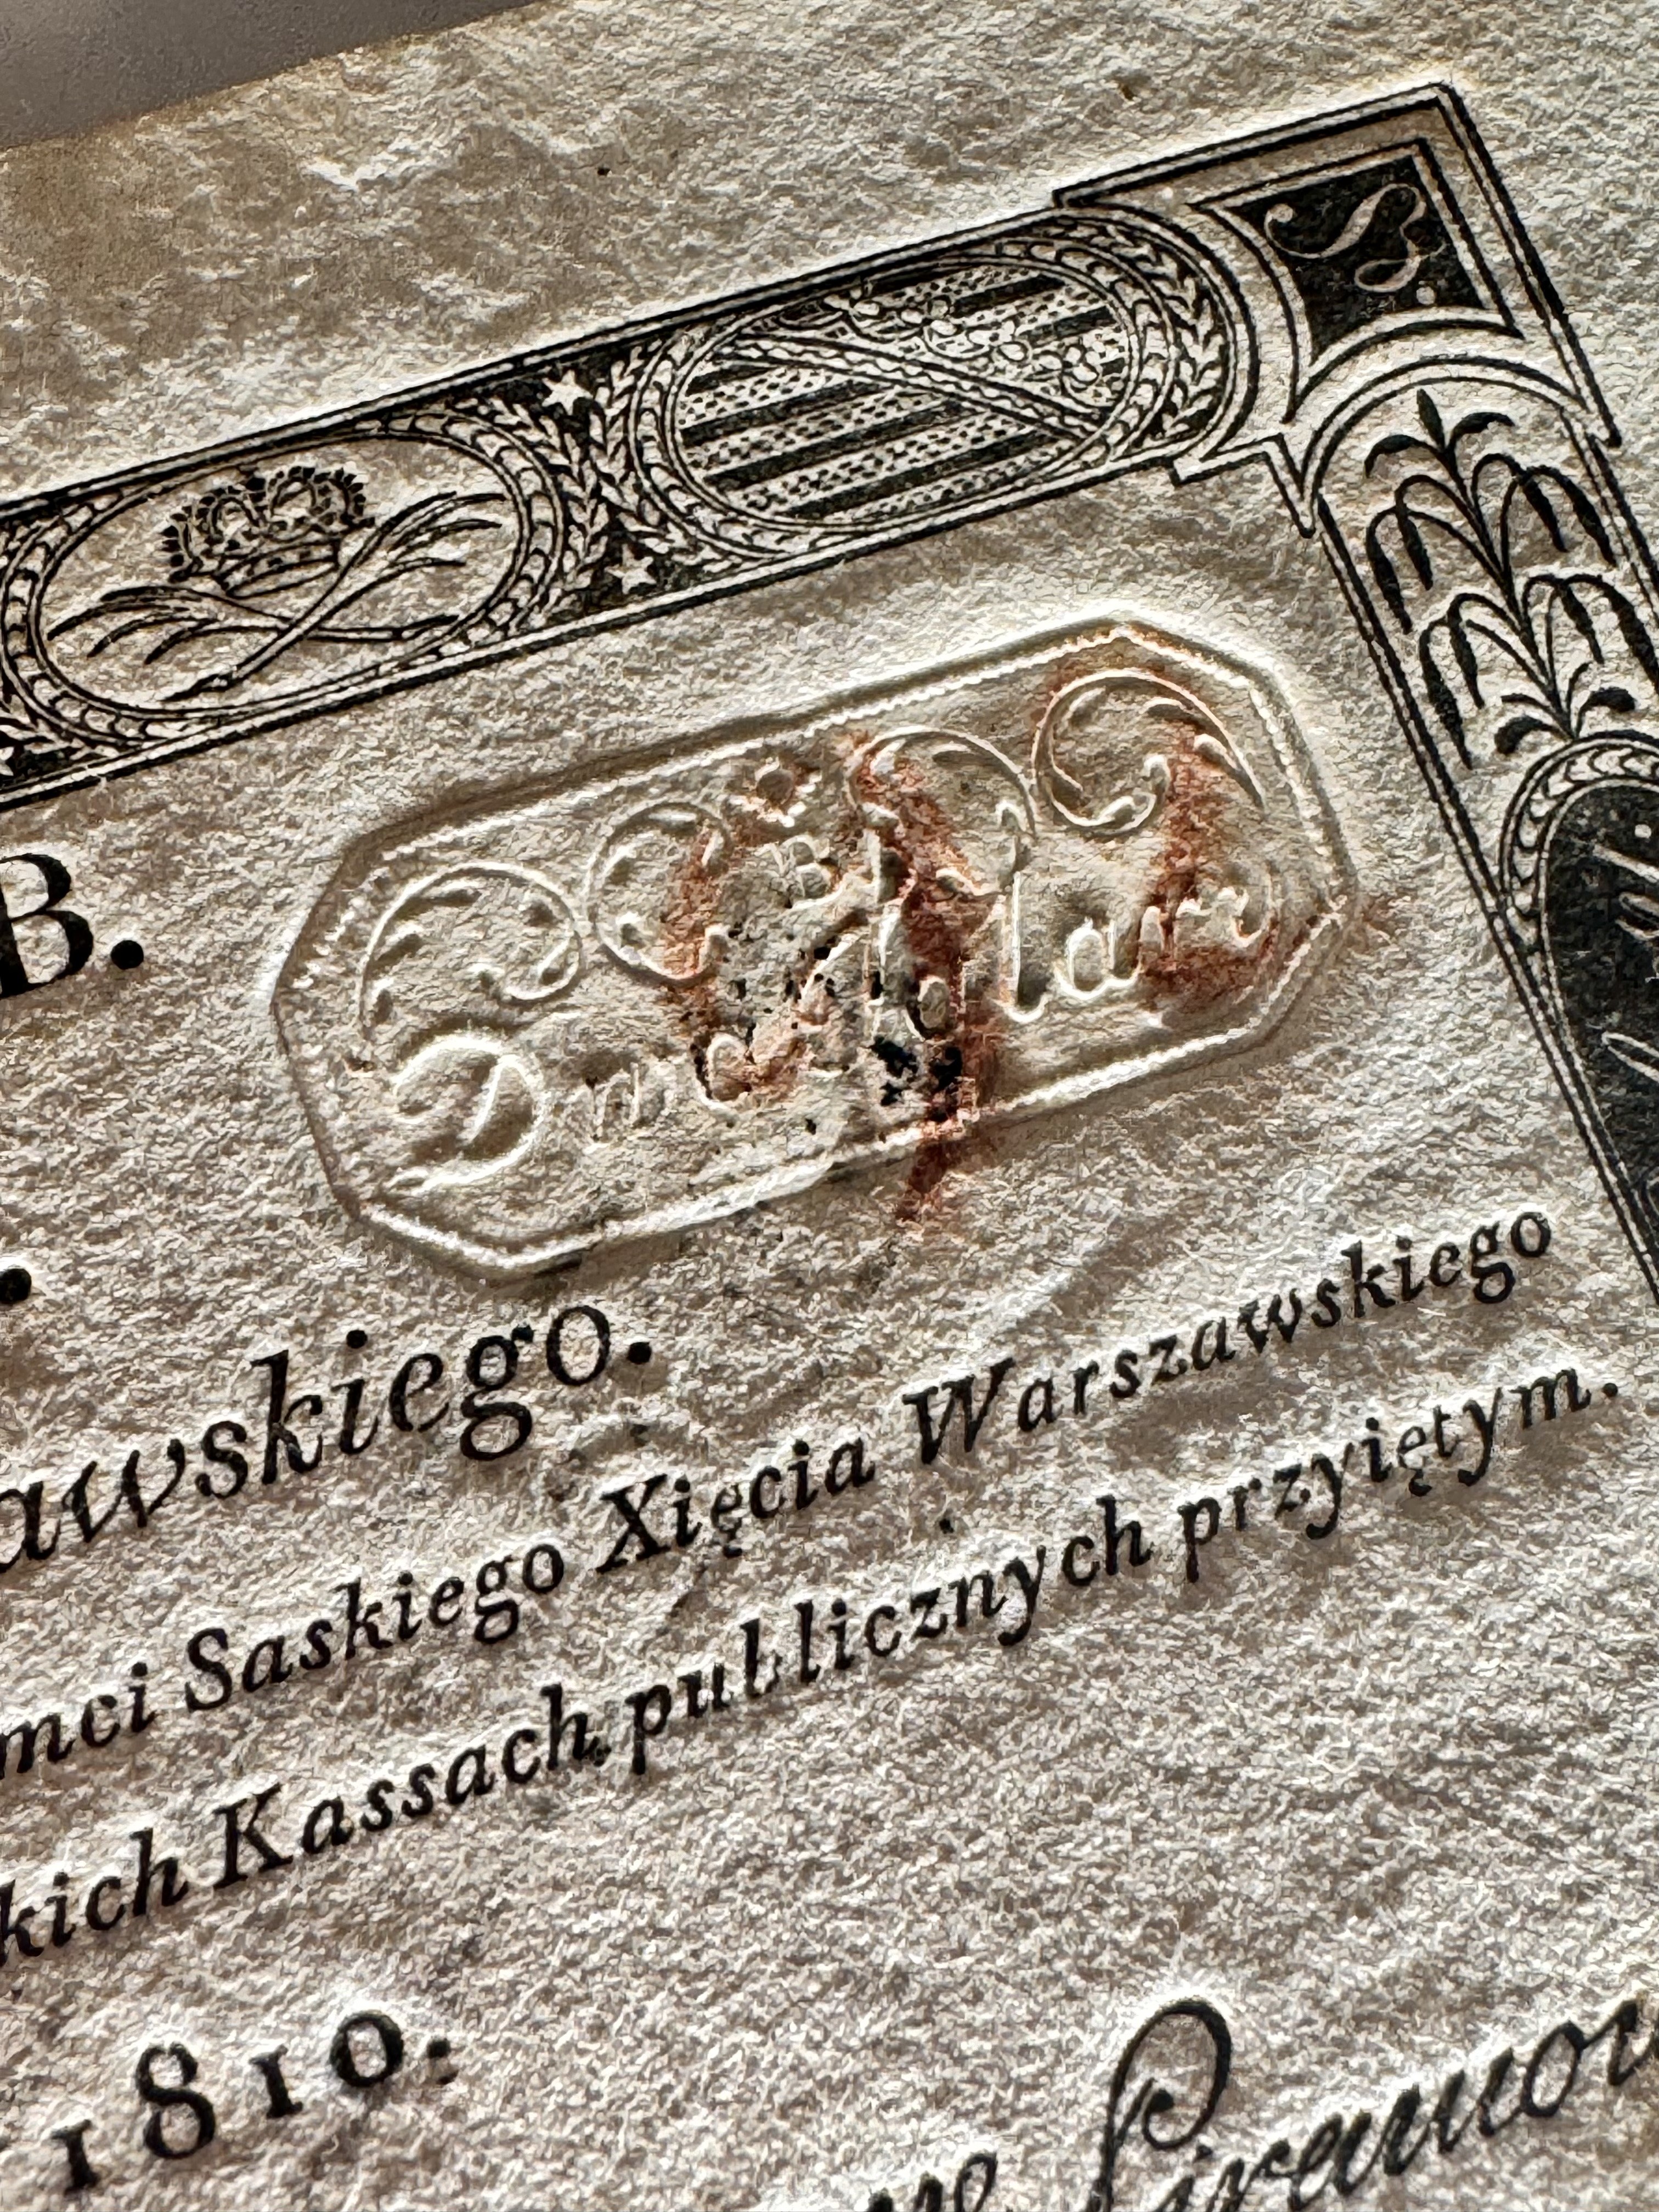 B.
Dwa Talary
awskiego.
mci Saskiego Xięcia Warszawskiego
kich Kassach publicznych przyiętym.
1810.